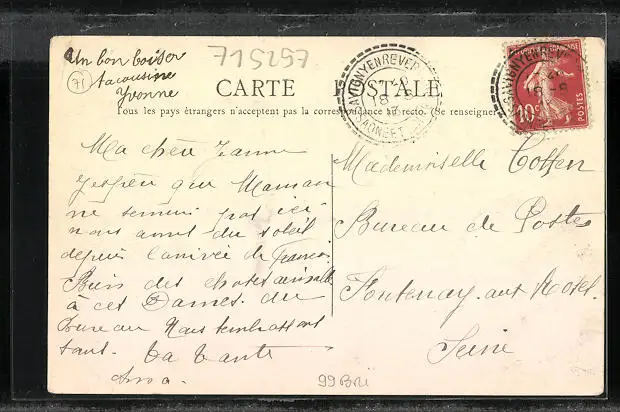 Un bon baiser
ta cousine
Yvonne
71
715257
CARTE POSTALE
Tous les pays étrangers n'acceptent pas la correspondance au recto. (Se renseigner
SAVIGNY EN REVERMONT
18
SAÔNE ET LOIRE
10c
POSTES
Ma chère Jeanne
J'espère que Maman
ne s'ennuie pas ici
nous avons du soleil
depuis l'arrivée de
Bien des choses aimables
à ces Dames du
Bureau Nous t'embrassons
tous. Ta Tante
Mademoiselle Coffen
Bureau de Postes
Fontenay aux Roses.
Seine